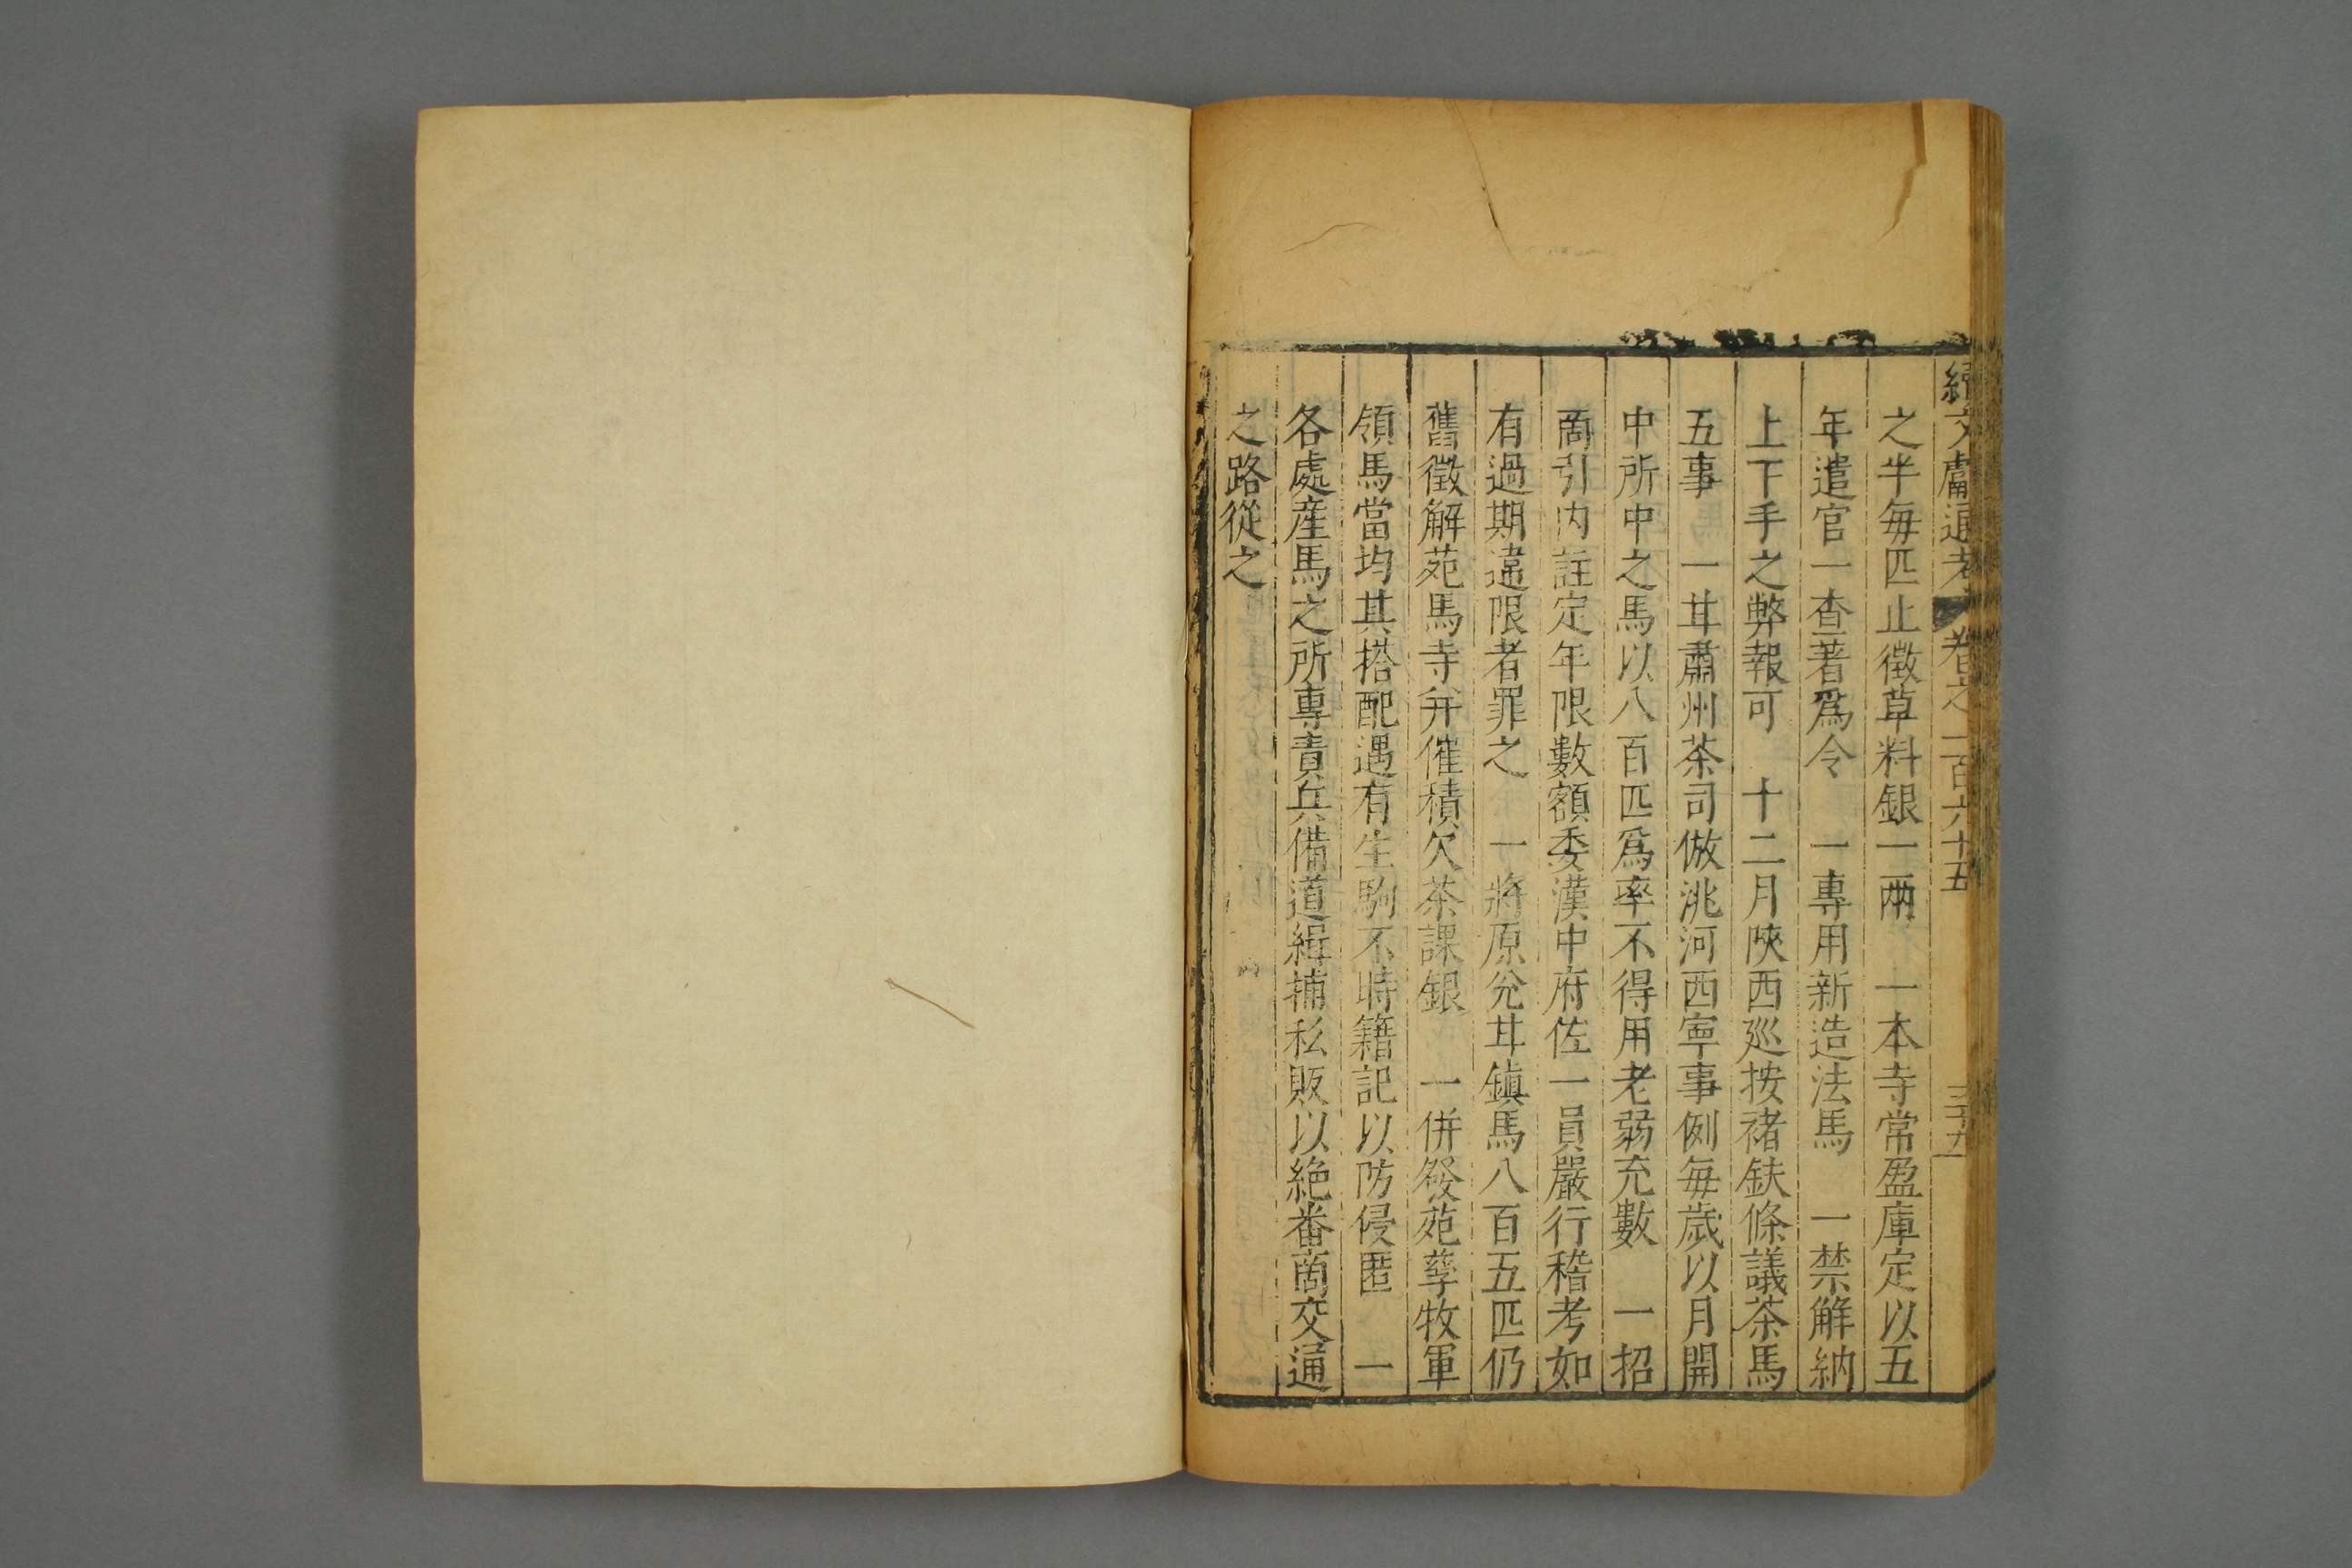 續文獻通考 卷之一百六十五 三十九
之半每匹止徵草料銀一兩 一本寺常盈庫定以五
年遣官一查著爲令 一專用新造法馬 一禁解納
上下手之弊報可 十二月陜西廵按禇鈇條議茶馬
五事 一甘肅州茶司倣洮河西寧事例每歲以月開
中所中之馬以八百匹爲率不得用老弱充數 一招
商引內註定年限數額委漢中府佐一員嚴行稽考如
有過期違限者罪之 一將原兌甘鎮馬八百五匹仍
舊徵解苑馬寺幷催積欠茶課銀 一併發苑孳牧軍
領馬當均其搭配遇有生駒不時籍記以防侵匿 一
各處產馬之所專責兵備道緝捕私販以絶番商交通
之路從之